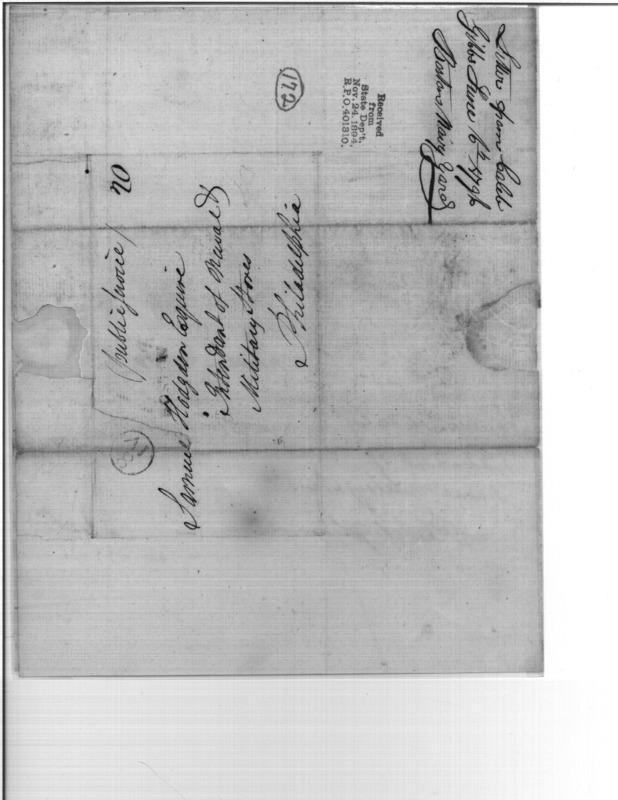 Letter from Caleb
Gibbs June 1796
Boston Navy Yard
Received
from
State Dep't.
Nov. 24, 1894,
R.P.O. 401310.
172
20
public service /
Samuel Hodgdon Esquire
Intendant of Naval &
Military Stores
Philadelphia